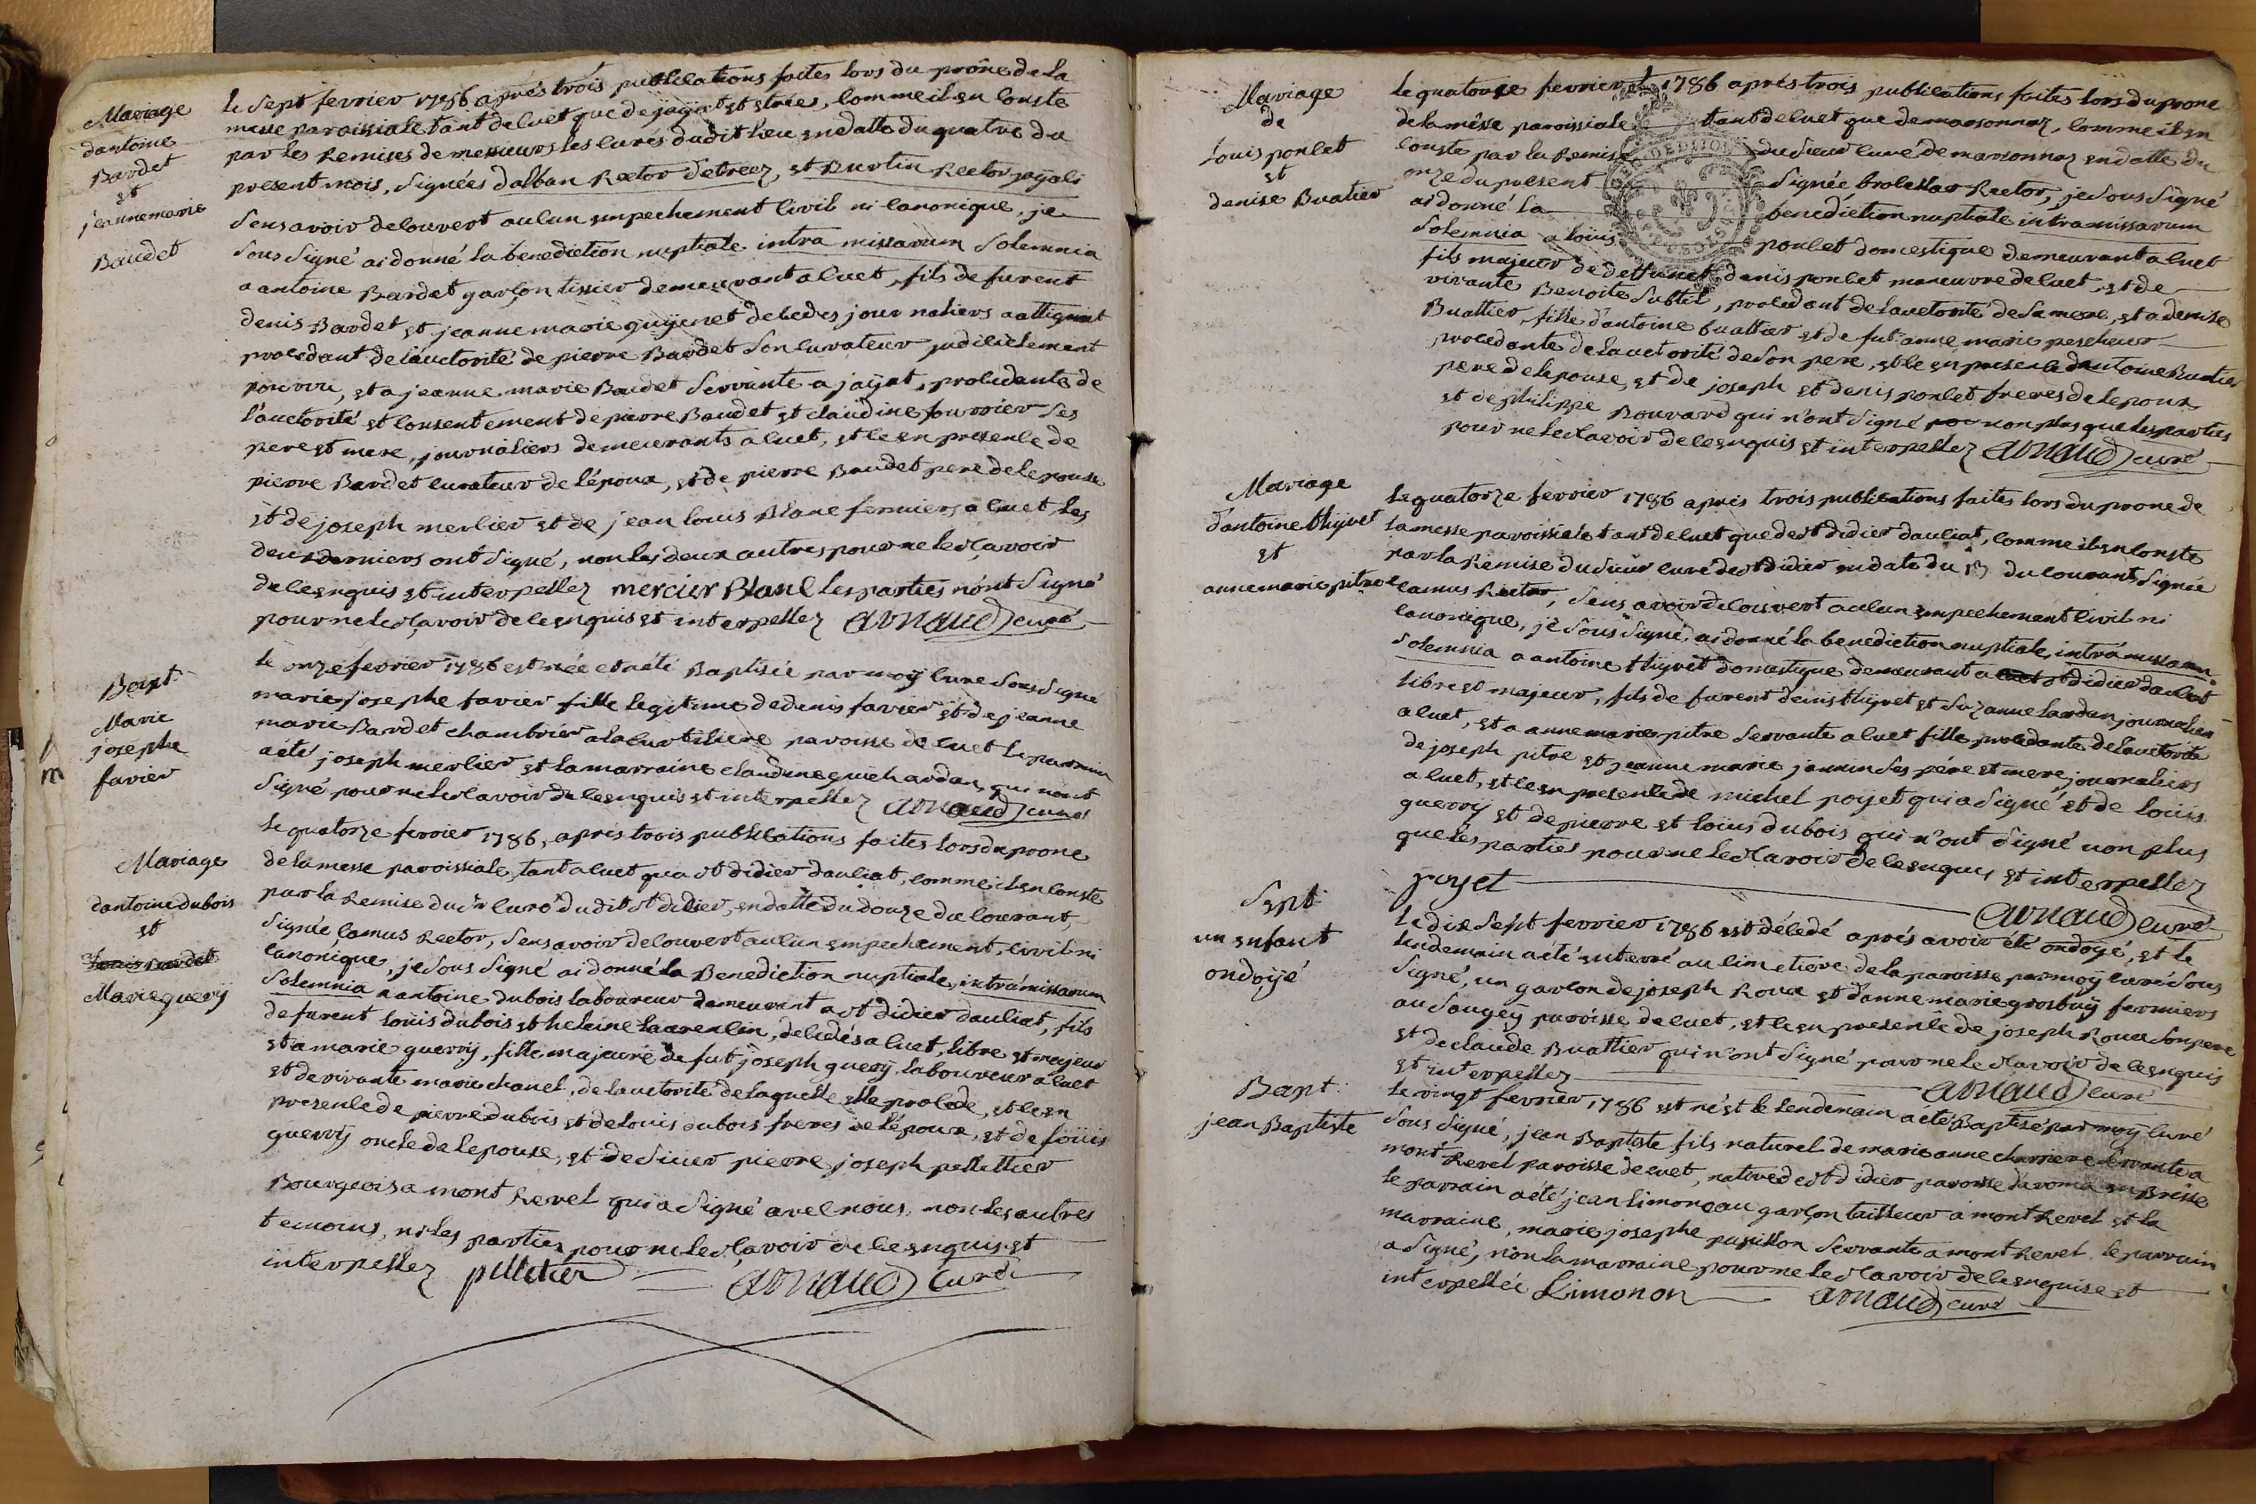 Mariage
dantoine
Bardet
et
jeanne marie
Baudet
le sept fevrier 1786 aprés trois publications faites lors du prône de la
messe paroissiale tant de cuet que de jayat et etrées, comme il en conste
par les Remises de messieurs les curés dudit lieu en datte du quatre du
present mois, signées dalban Rector detreez, et Burtin Rector jayati
sens avoir decouvert aucun empechement civil ni canonique, je
sous signé ai donné la benediction nuptiale intra missarum solemnia
a antoine Bardet garçon tissier demeurant a cuet, fils de furent
denis Bardet et jeanne marie guyenet decedes journaliers a attignat
procedant de l'auctorité de pierre Bardet son curateur judiciclement
pourvu, et a jeanne marie Baudet servante a jayat, procedante de
l'auctorité et consentement de pierre Baudet et claudine fourrier ses
pere et mere, journaliers demeurants a cuet, et ce en presence de
pierre Bardet curateur de l'époux, et de pierre Baudet pere de lepouse
et de joseph mercier et de jean louis Blanc fermiers a cuet, les
deux derniers ont signé, non les deux autres pour ne le sçavoir
de ce enquis et interpellez mercier Blanc les parties n'ont signé
pour ne le sçavoir de ce enquis et interpellez arnaud curé
Bapt
Marie
josephe
favier
le onze fevrier 1786 est née et a été Baptisée par moy curé sous signé
marie josephe favier fille legitime de denis favier et de jeanne
marie Bardet chambrier a la curtiliere paroisse de cuet le parrain
a été joseph mercier et la marraine claudine guichardan, qui n'ont
signé pour ne le sçavoir de ce enquis et interpellez arnaud curé
Mariage
dantoine dubois
et
Marie guerry
le quatorze fevrier 1786, aprés trois publications faites lors du prone
de la messe paroissiale, tant a cuet qua st didier dauliat, comme il en conste
par la Remise du sr curé dudit st didier, en datte du douze du courant,
signée camus Rector, sens avoir decouvert aucun empechement, civil ni
canonique, je sous signé ai donné la Benediction nuptiale, intrámissarum
solemnia a antoine dubois laboureur demeurant a st didier dauliat, fils
de furent loüis dubois et helaine, decedés a cuet, libre et majeur
et a marie guerry, fille majeure de fut joseph guery, laboureur a cuet
et de vivante marie chanel, de l'auctorité de laquelle elle procede, et ce en
presence de pierre dubois et de louis dubois freres de l'époux, et de loüis
guerry oncle de lepouse, et de sieur pierre joseph pelletier
Bourgeois a mont Revel qui a signé avec nous, non les autres
temoins, ni les parties pour ne le sçavoir de ce enquis et
interpellez pelletier arnaud curé
Mariage
de
louis ponlet
et
denise Buatier
le quatorze fevrier 1786 aprés trois publications faites lors du prone
de la messe paroissiale tant de cuet que de marsonnaz, comme il en
conste par la Remise du sieur curé de marsonnaz en datte du
onze du present signée brolessar Rector, je sous signé
ai donné la benediction nuptiale intra missarum
solemnia a loüis ponlet domestique demeurant a cuet
fils majeur de deffunct denis ponlet maneuvre de cuet, et de
vivante Benoite subtil, procedant de l'auctorité de sa mere, et a denise
Buattier, fille d'antoine buattier et de fut anne marie pescheur
procedante de l'auctorité de son pere, et ce en presence dantoine Buatier
pere de lepouse, et de joseph et denis ponlet freres de lepoux
et de philippe Bouvard qui n'ont signé non plus que les parties
pour ne le sçavoir de ce enquis et interpellez arnaud curé
Mariage
d'antoine thyvet
et
anne marie pitre
le quatorze fevrier 1786 aprés trois publications faites lors du prone de
la messe paroissiale tant de cuet que de st didier dauliat, comme il en conste
par la Remise du sieur curé de st didier en date du 13 du courant signée
camus Rector, sens avoir decouvert aucun empechement civil ni
canonique, je sous signé, ai donné la benediction nuptiale, intrá missarum
solemnia a antoine thyvet domestique demeurant a st didier dauliat
libre et majeur, fils de furent denis thyvet et suzanne journaliers
a cuet, et a anne marie pitre servante a cuet fille procedante de l'auctorité
de joseph pitre et jeanne marie jannin ses pére et mere, journaliers
a cuet, et ce en presence de michel poyet qui a signé et de loüis
guerry et de pierre et loüis dubois qui n'ont signé non plus
que les parties pour ne le sçavoir de ce enquis et interpellez
poyet arnaud curé
Sept
un enfant
ondoyé
le dix sept fevrier 1786 est décedé aprés avoir été ondoyé, et le
lendemain a été enterré au cimetiere de la paroisse par moy curé sous
signé, un garcon de joseph Roux et d'anne marie grosbuy fermiers
au sougey paroisse de cuet, et ce en presence de joseph Roux son pere
et de claude Buattier qui n'ont signé pour ne le sçavoir de ce enquis
et interpellez arnaud curé
Bapt:
jean Baptiste
le vingt fevrier 1786 est né et le lendemain a été Baptisé par moy curé
sous signé, jean Baptiste fils naturel de marie anne charriere servante a
mont Revel paroisse de cuet, native de st didier paroisse en Bresse
le parrain a été jean limonon garçon tailleur a mont Revel et la
marraine, marie josephe papillon servante a mont Revel le parrain
a signé, non la marraine pour ne le sçavoir de ce enquise et
interpellée Limonon arnaud curé